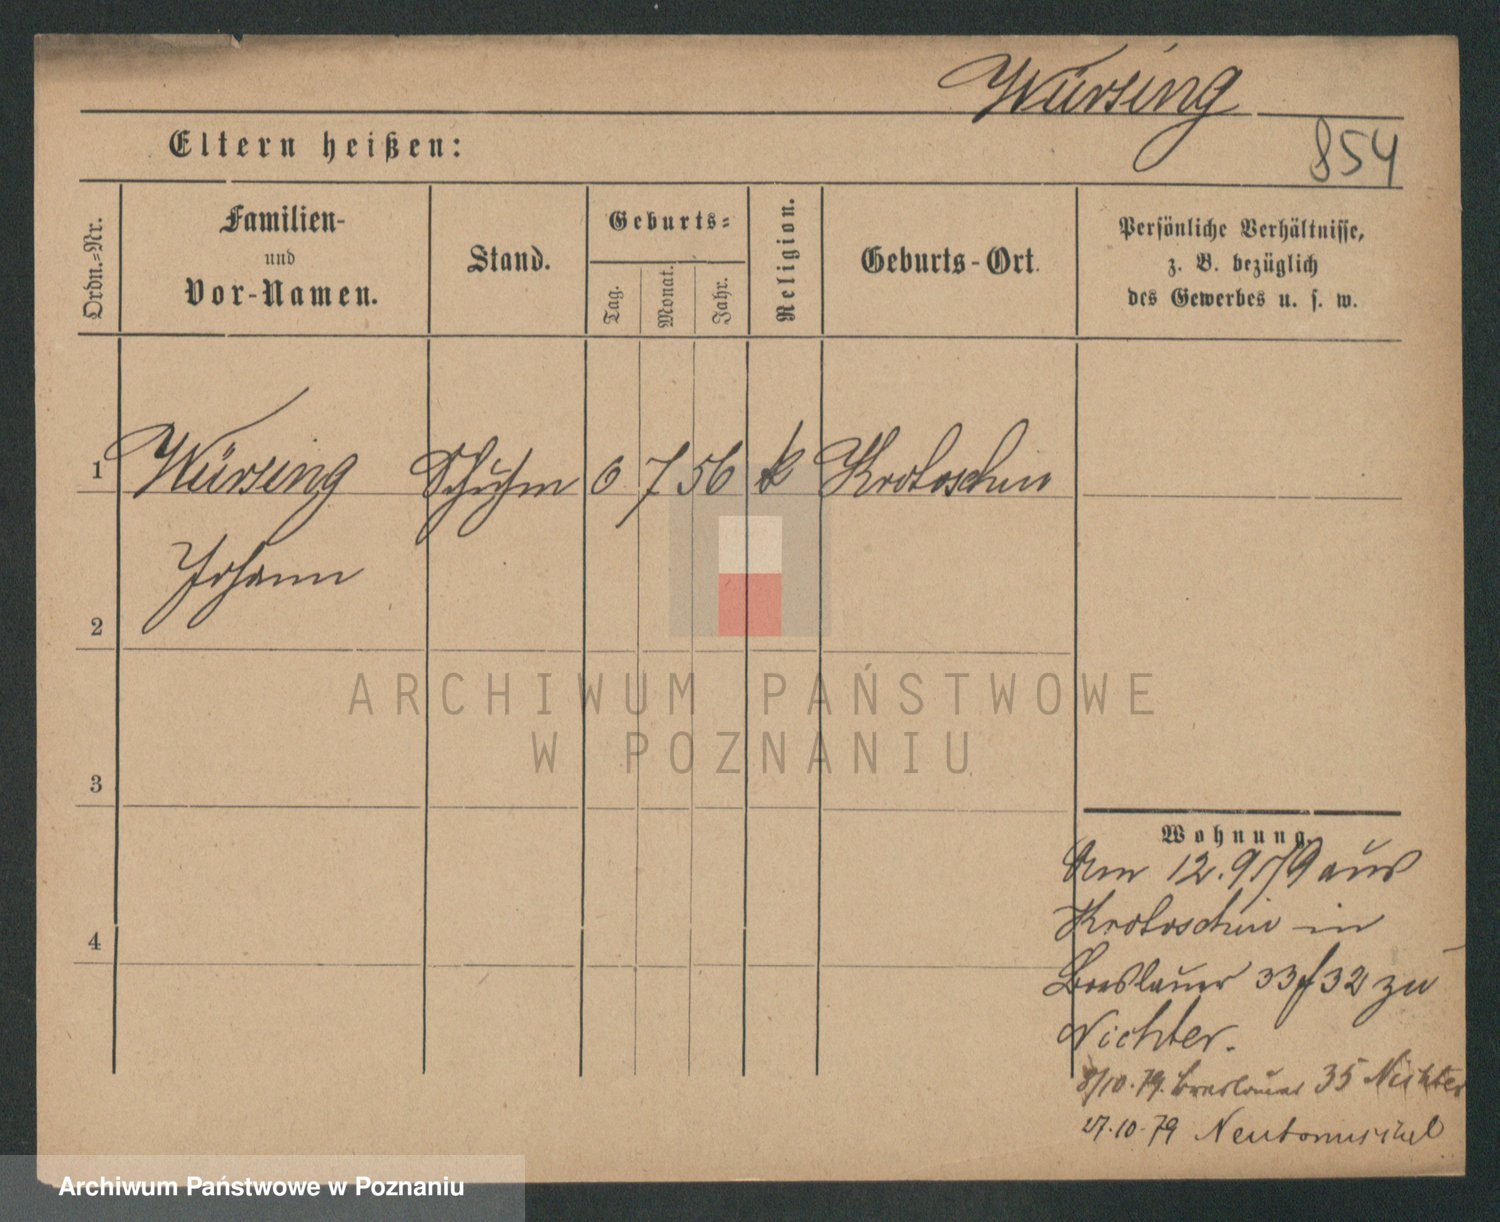 Würsing
854
Eltern heißen:
Ordn.-Nr.
Familien-
und
Vor-Namen.
Stand.
Geburts-
Tag.
Monat.
Jahr.
Religion.
Geburts-Ort.
Persönliche Verhältnisse,
z. B. bezüglich
des Gewerbes u. s. w.
1 Würsing Schuhm 6 7 56 k Krotoschin
Johann
2
3
4
ARCHIWUM PAŃSTWOWE
W POZNANIU
Wohnung.
Am 12.9/79 aus
Krotoschin in
Breslauer 33/32 zu
Nichter.
8/10.79. Breslauer 35 Nichter
27.10.79 Neutomischel
Archiwum Państwowe w Poznaniu